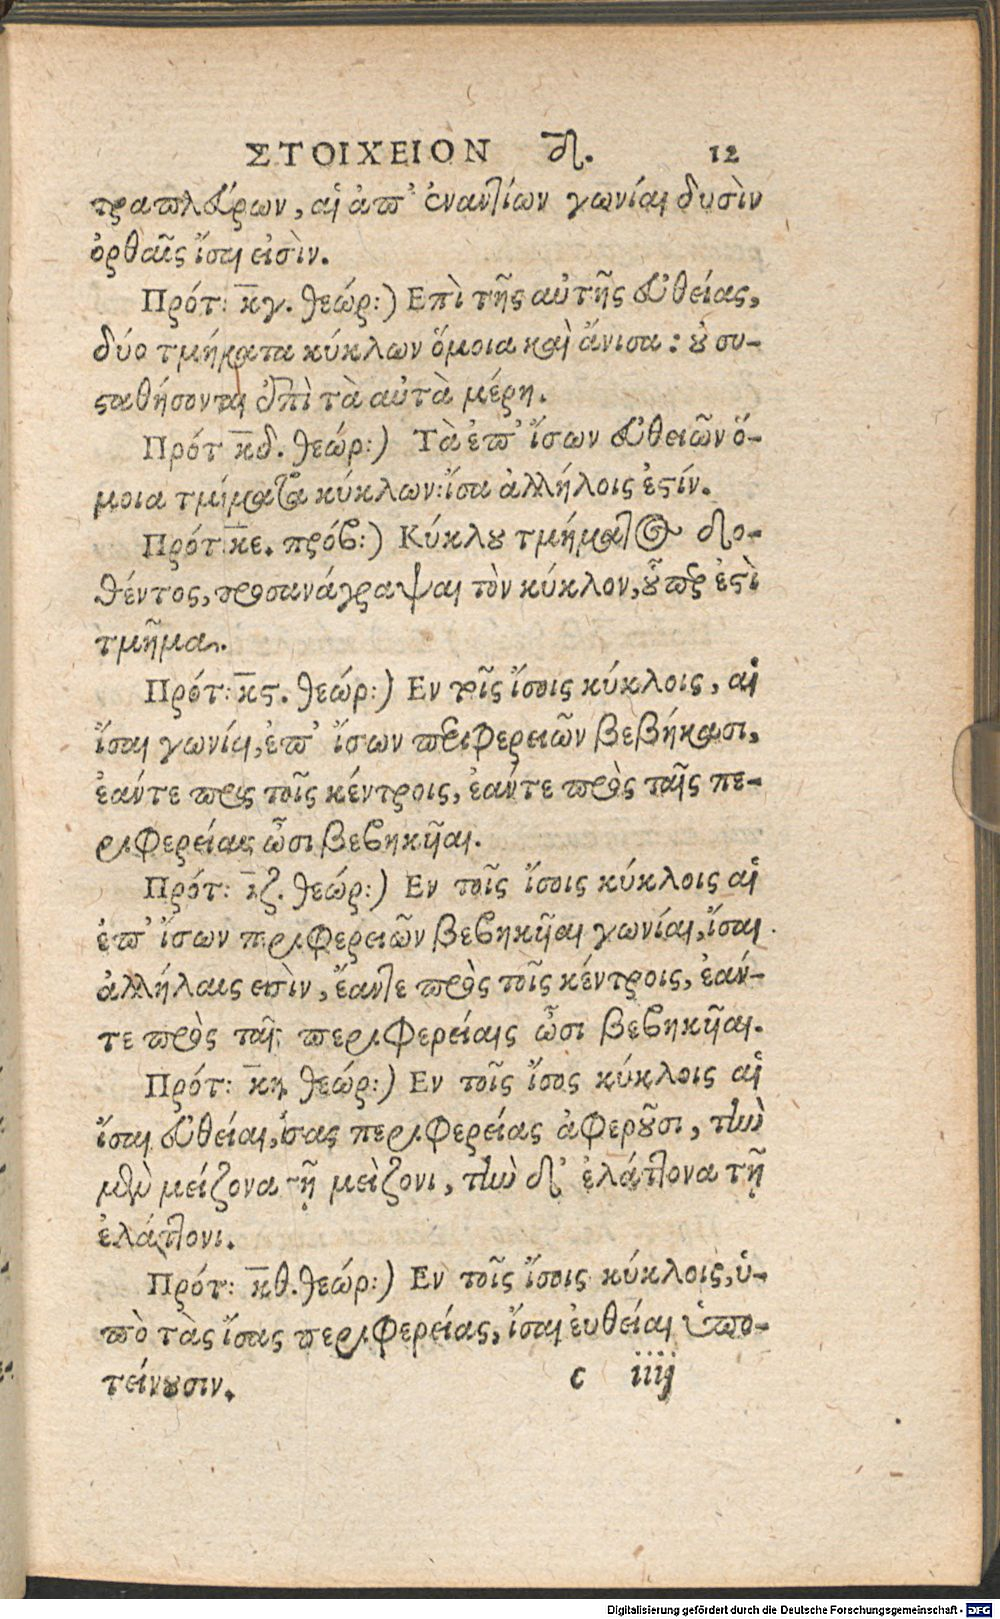 ΣΤΟΙΧΕΙΟΝ δ. 12
τραπλεύρων, αἱ ἀπ' ἐναντίων γωνίαι δυσὶν
ὀρθαῖς ἴσαι εἰσὶν.
Πρότ: κγ. θεώρ:) Επὶ τῆς αὐτῆς εὐθείας,
δύο τμήματα κύκλων ὅμοια καὶ ἄνισα: οὐ συ-
σταθήσονται ἐπὶ τὰ αὐτὰ μέρη.
Πρότ κδ. θεώρ:) Τὰ ἐπ' ἴσων εὐθειῶν ὅ-
μοια τμήματα κύκλων: ἴσα ἀλλήλοις ἐστίν.
Πρότ: κε. πρόβ:) Κύκλου τμήματος δο-
θέντος, προσανάγραψαι τὸν κύκλον, οὗπερ ἐστὶ
τμῆμα.
Πρότ: κϛ. θεώρ:) Εν τοῖς ἴσοις κύκλοις, αἱ
ἴσαι γωνίαι, ἐπ' ἴσων περιφερειῶν βεβήκασι,
ἐάντε πρὸς τοῖς κέντροις, ἐάντε πρὸς ταῖς πε-
ριφερείαις ὦσι βεβηκῦαι.
Πρότ: κζ. θεώρ:) Εν τοῖς ἴσοις κύκλοις αἱ
ἐπ' ἴσων περιφερειῶν βεβηκῦαι γωνίαι, ἴσαι
ἀλλήλαις εἰσὶν, ἔαντε πρὸς τοῖς κέντροις, ἐάν-
τε πρὸς ταῖς περιφερείαις ὦσι βεβηκῦαι.
Πρότ: κη θεώρ:) Εν τοῖς ἴσοις κύκλοις αἱ
ἴσαι εὐθεῖαι, ἴσας περιφερείας ἀφεροῦσι, τὴν
μὲν μείζονα τῇ μείζονι, τὴν δ' ἐλάττονα τῇ
ἐλάττονι.
Πρότ: κθ. θεώρ:) Εν τοῖς ἴσοις κύκλοις, ὑ-
πὸ τὰς ἴσας περιφερείας, ἴσαι ἐυθείαι ὑπο-
τείνουσιν. c iiij
Digitalisierung gefördert durch die Deutsche Forschungsgemeinschaft - DFG